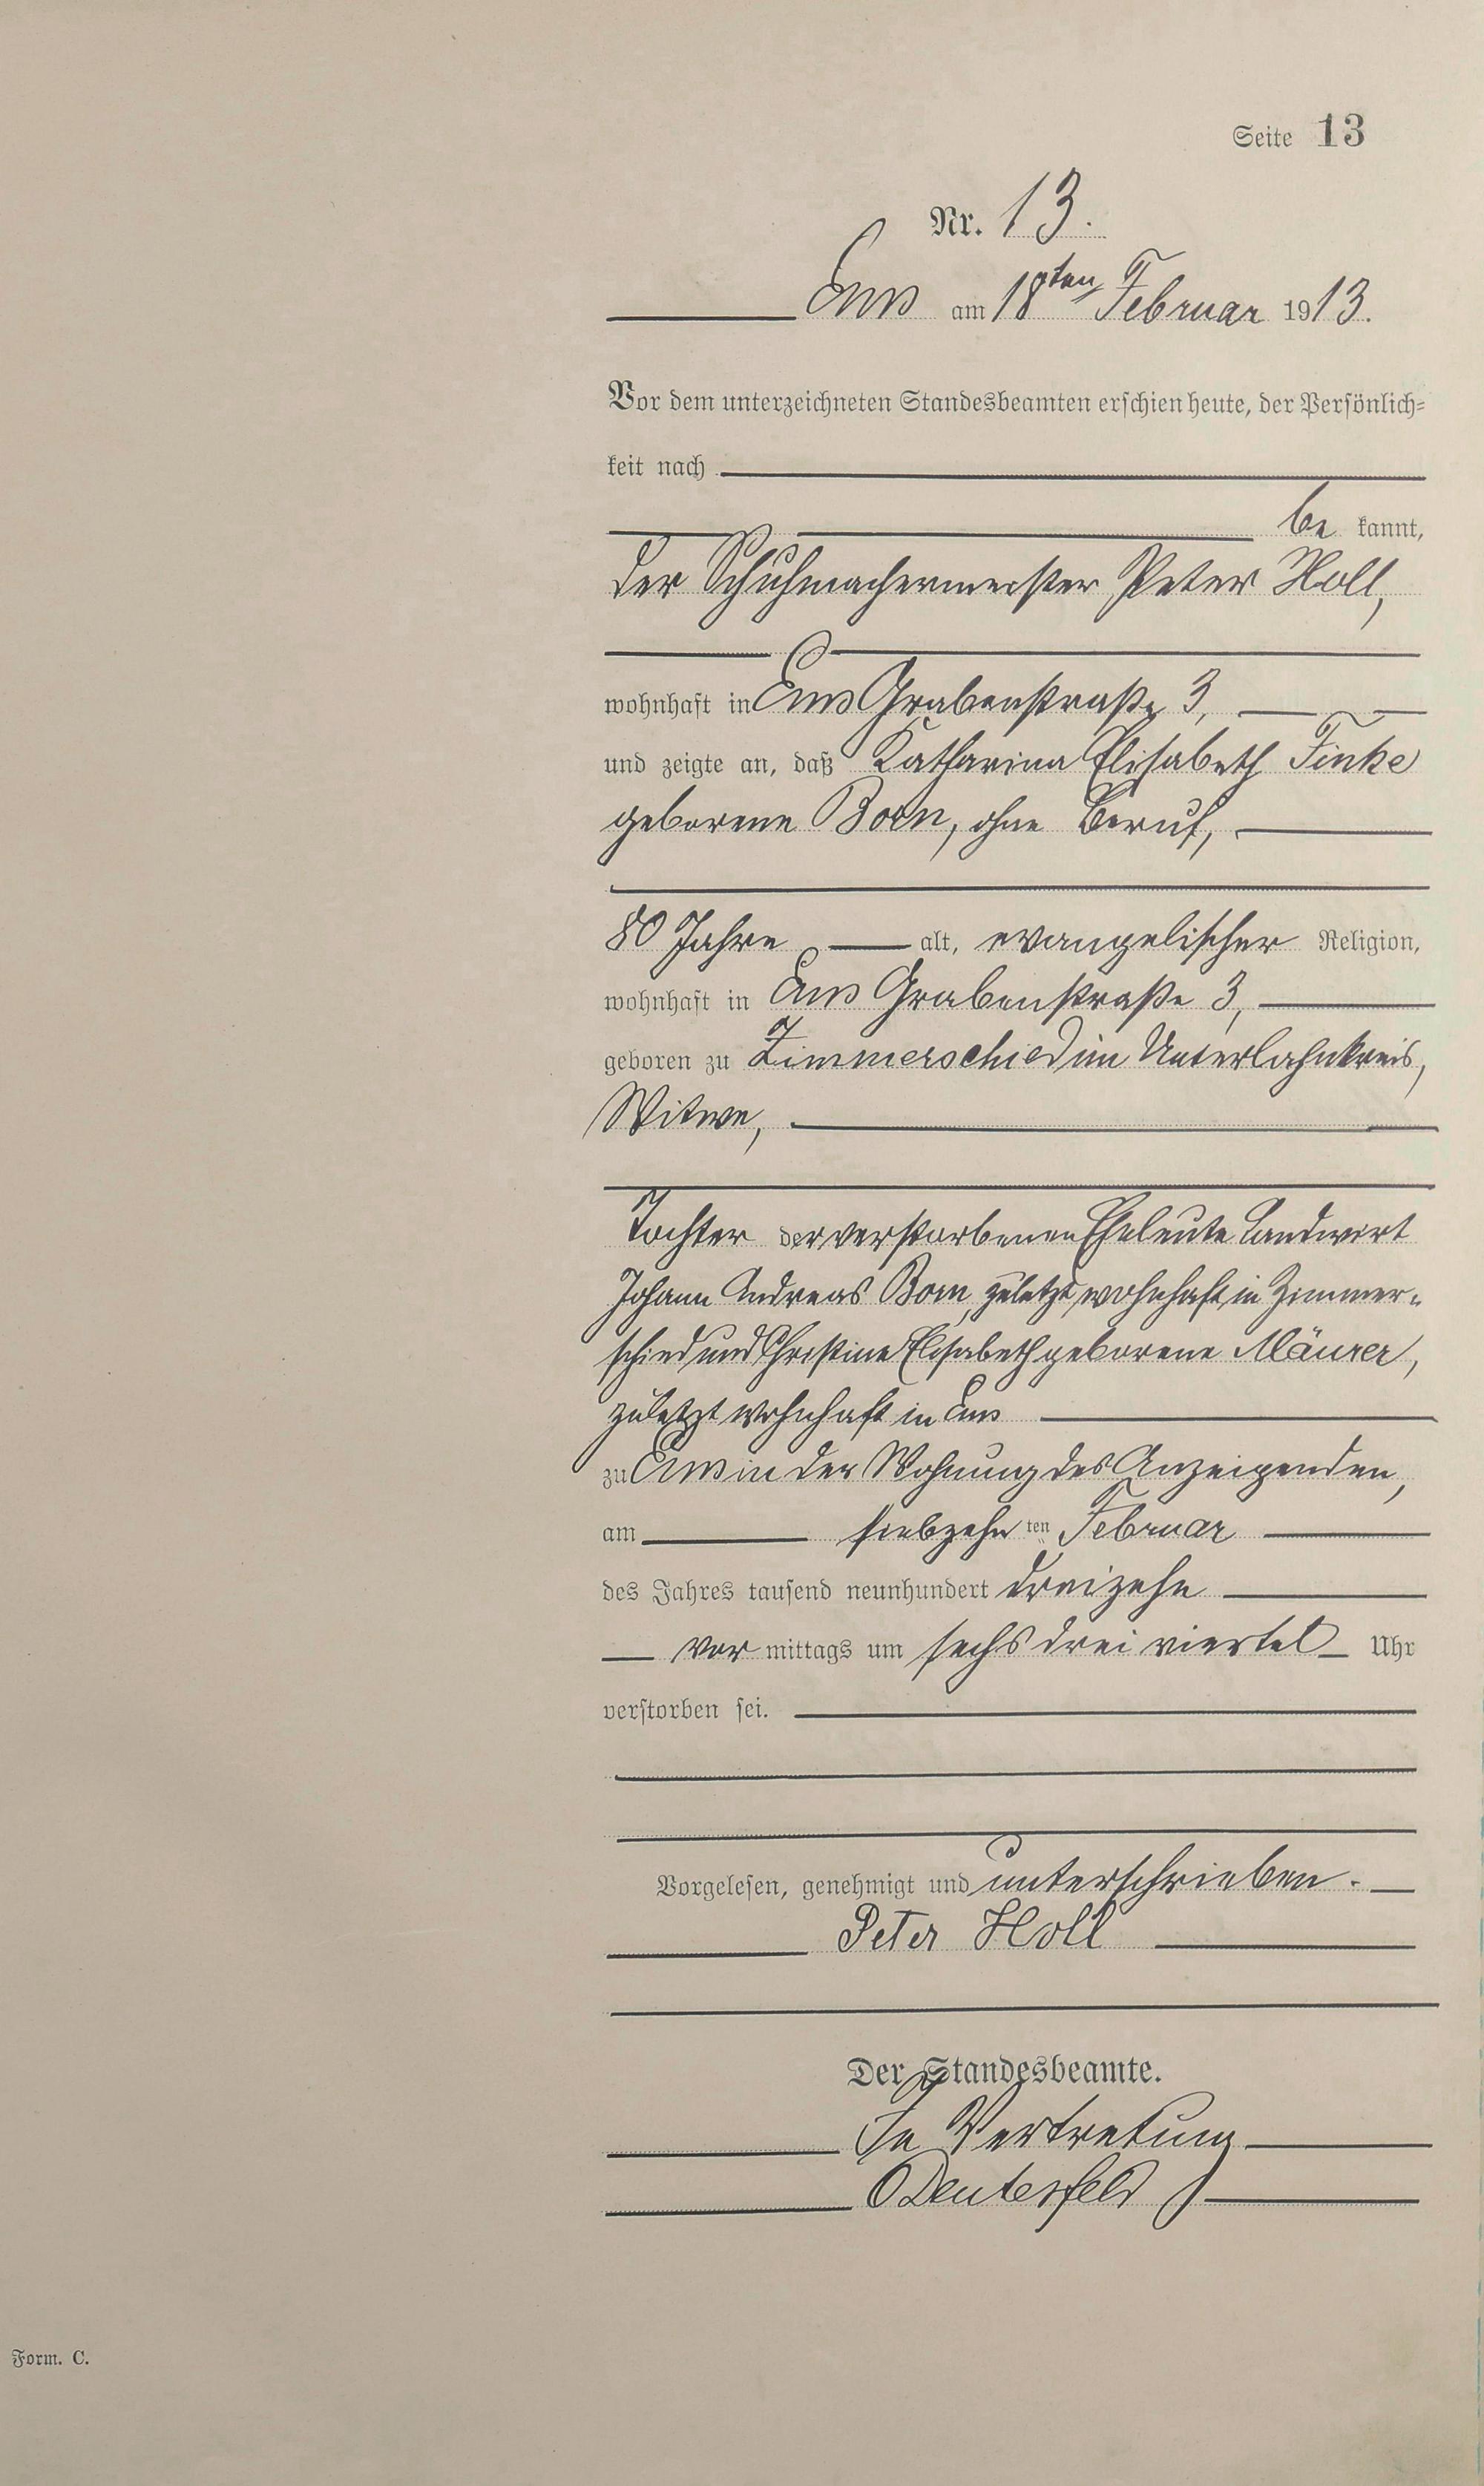 Seite 13
Nr. 13.
Ems am 18ten Februar 1913.
Vor dem unterzeichneten Standesbeamten erschien heute, der Persönlich-
keit nach
be kannt,
der Schuhmachermeister Peter Holl,
wohnhaft in Ems Grabenstraße 3,
und zeigte an, daß Katharina Elisabeth Finke
geborene Born, ohne Beruf,
80 Jahre alt, evangelischer Religion,
wohnhaft in Ems Grabenstraße 3,
geboren zu Zimmerschied im Unterlahnkreis,
Witwe,
Tochter der verstorbenen Eheleute Landwirt
Johann Andreas Born, zuletzt wohnhaft in Zimmer-
schied und Christine Elisabeth geborene Mäurer,
zuletzt wohnhaft in Ems
zu Ems in der Wohnung des Anzeigenden,
am siebzehn ten Februar
des Jahres tausend neunhundert dreizehn
vor mittags um sechs drei viertel Uhr
verstorben sei.
Vorgelesen, genehmigt und unterschrieben.
Peter Holl
Der Standesbeamte.
In Vertretung
Form. C.